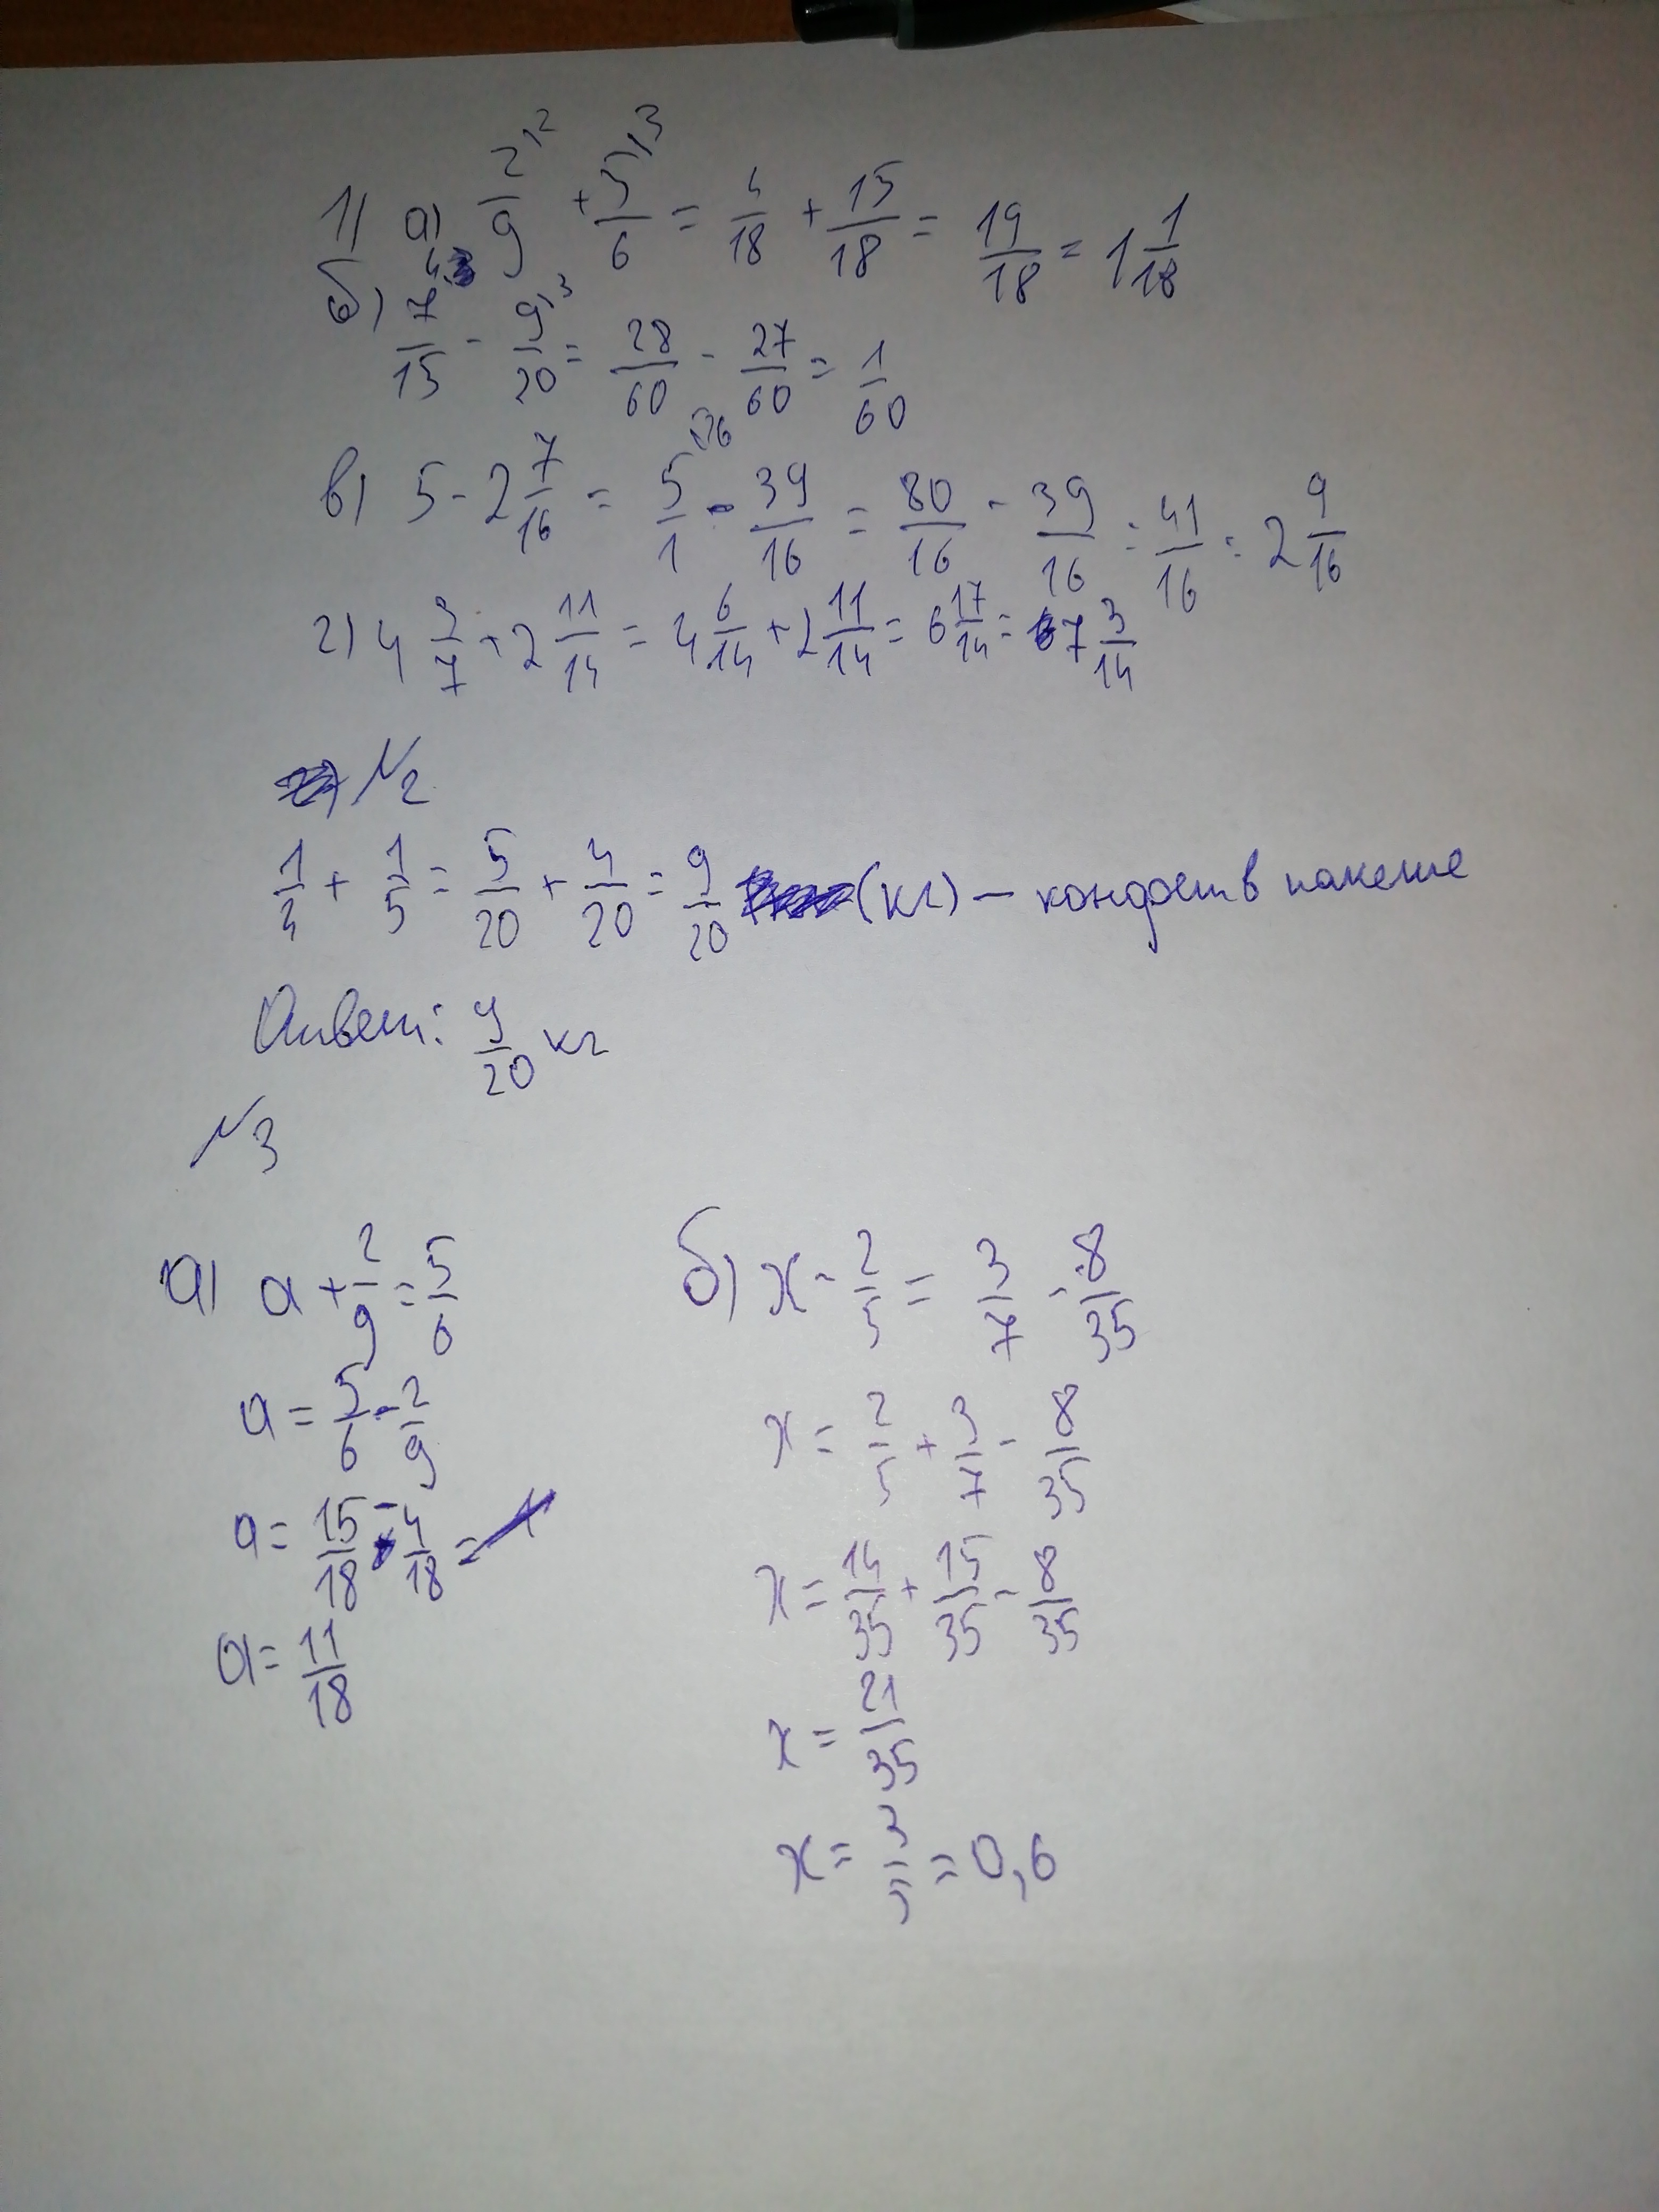 1) а) 2/9 ,2 + 5/6 ,3 = 4/18 + 15/18 = 19/18 = 1 1/18
б) 7/15 ,4 - 9/20 ,3 = 28/60 - 27/60 = 1/60
в) 5 - 2 7/16 = 5/1 ,16 - 39/16 = 80/16 - 39/16 = 41/16 = 2 9/16
г) 4 3/7 + 2 11/14 = 4 6/14 + 2 11/14 = 6 17/14 = 7 3/14
N2
1/4 + 1/5 = 5/20 + 4/20 = 9/20 (кг) - конфет в пакете
Ответ: 9/20 кг
N3
а) a + 2/9 = 5/6
a = 5/6 - 2/9
a = 15/18 - 4/18 =
a = 11/18
б) x - 2/5 = 3/7 - 8/35
x = 2/5 + 3/7 - 8/35
x = 14/35 + 15/35 - 8/35
x = 21/35
x = 3/5 = 0,6